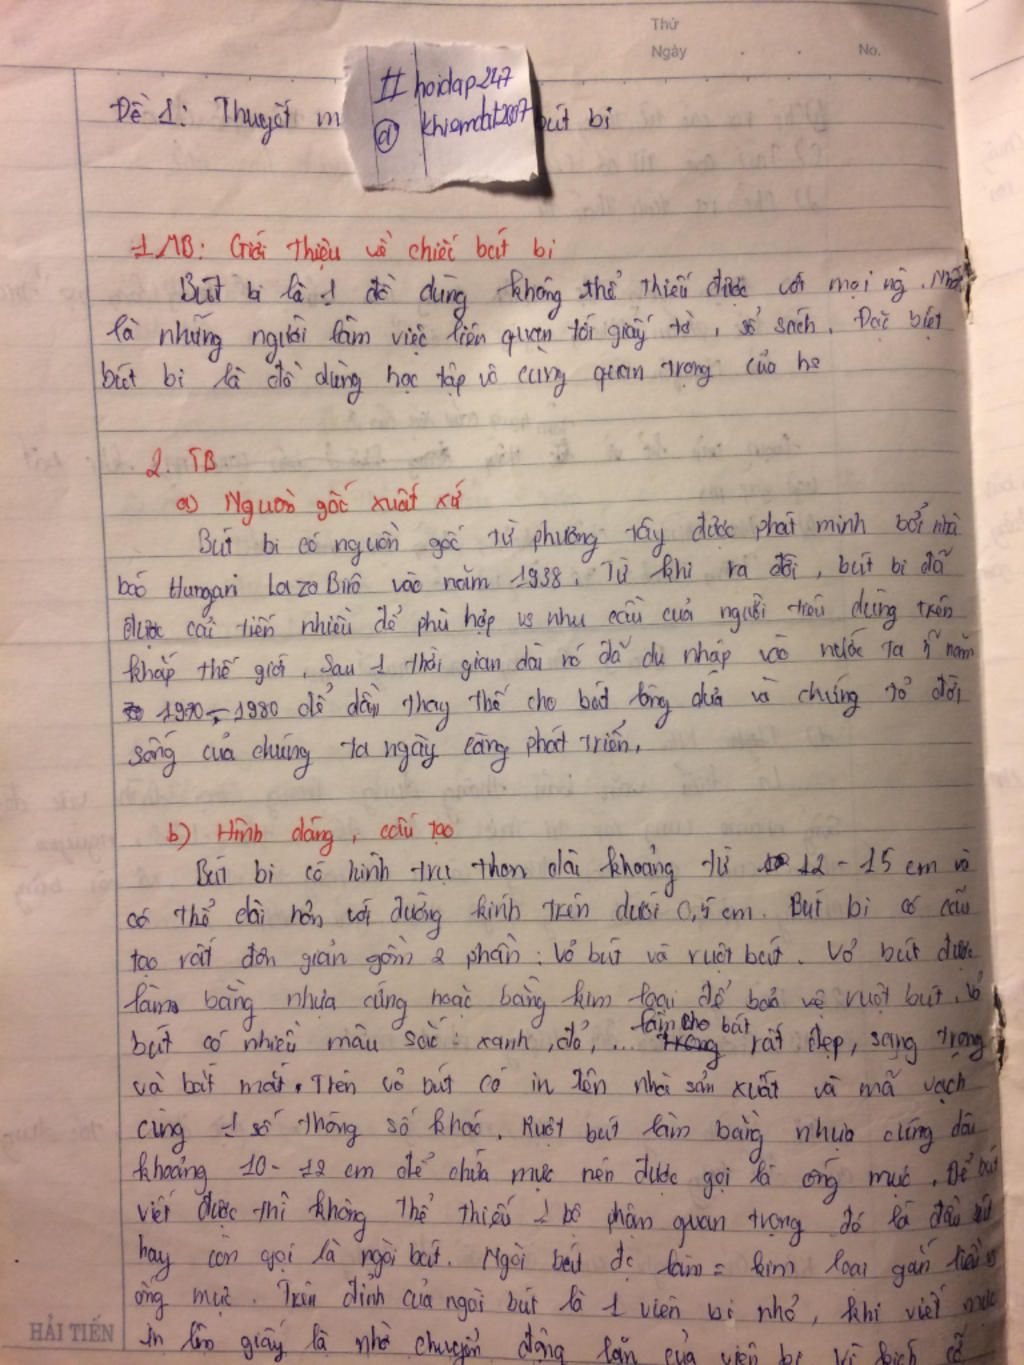 Thứ
Ngày . . No.
# hoidap247
@ khiemdat2007
Đề 1: Thuyết m bút bi
1 MB: Giới thiệu về chiếc bút bi
Bút bi là 1 đồ dùng không thể thiếu được với mọi ng. Nhất
là những người làm việc liên quan tới giấy tờ, sổ sách. Đặc biệt
bút bi là đồ dùng học tập vô cùng quan trọng của hs
2. TB
a) Nguồn gốc xuất xứ
Bút bi có nguồn gốc từ phương tây được phát minh bởi nhà
báo Hungari Lazo Birô vào năm 1938. Từ khi ra đời, bút bi đã
được cải tiến nhiều để phù hợp vs nhu cầu của người tiêu dùng trên
khắp thế giới. Sau 1 thời gian dài nó đã du nhập vào nước ta năm
1970 - 1980 để dần thay thế cho bút lông dừa và chứng tỏ đời
sống của chúng ta ngày càng phát triển.
b) Hình dáng, cấu tạo
Bút bi có hình trụ thon dài khoảng từ 12 - 15 cm và
có thể dài hơn với đường kính trên dưới 0,5 cm. Bút bi có cấu
tạo rất đơn giản gồm 2 phần: Vỏ bút và ruột bút. Vỏ bút được
làm bằng nhựa cứng hoặc bằng kim loại để bảo vệ ruột bút. Vỏ
bút có nhiều màu sắc: xanh, đỏ, ... làm cho bút rất đẹp, sang trọng
và bắt mắt. Trên vỏ bút có in tên nhà sản xuất và mã vạch
cùng 1 số thông số khác. Ruột bút làm bằng nhựa cứng dài
khoảng 10 - 12 cm để chứa mực nên được gọi là ống mực. Để bút
viết được thì không thể thiếu 1 bộ phận quan trọng đó là đầu bút
hay còn gọi là ngòi bút. Ngòi bút đc làm = kim loại gắn liền vs
ống mực. Trên đỉnh của ngòi bút là 1 viên bi nhỏ, khi viết mực
in lên giấy là nhờ chuyển động lăn của viên bi. Vì kích cỡ
HẢI TIẾN